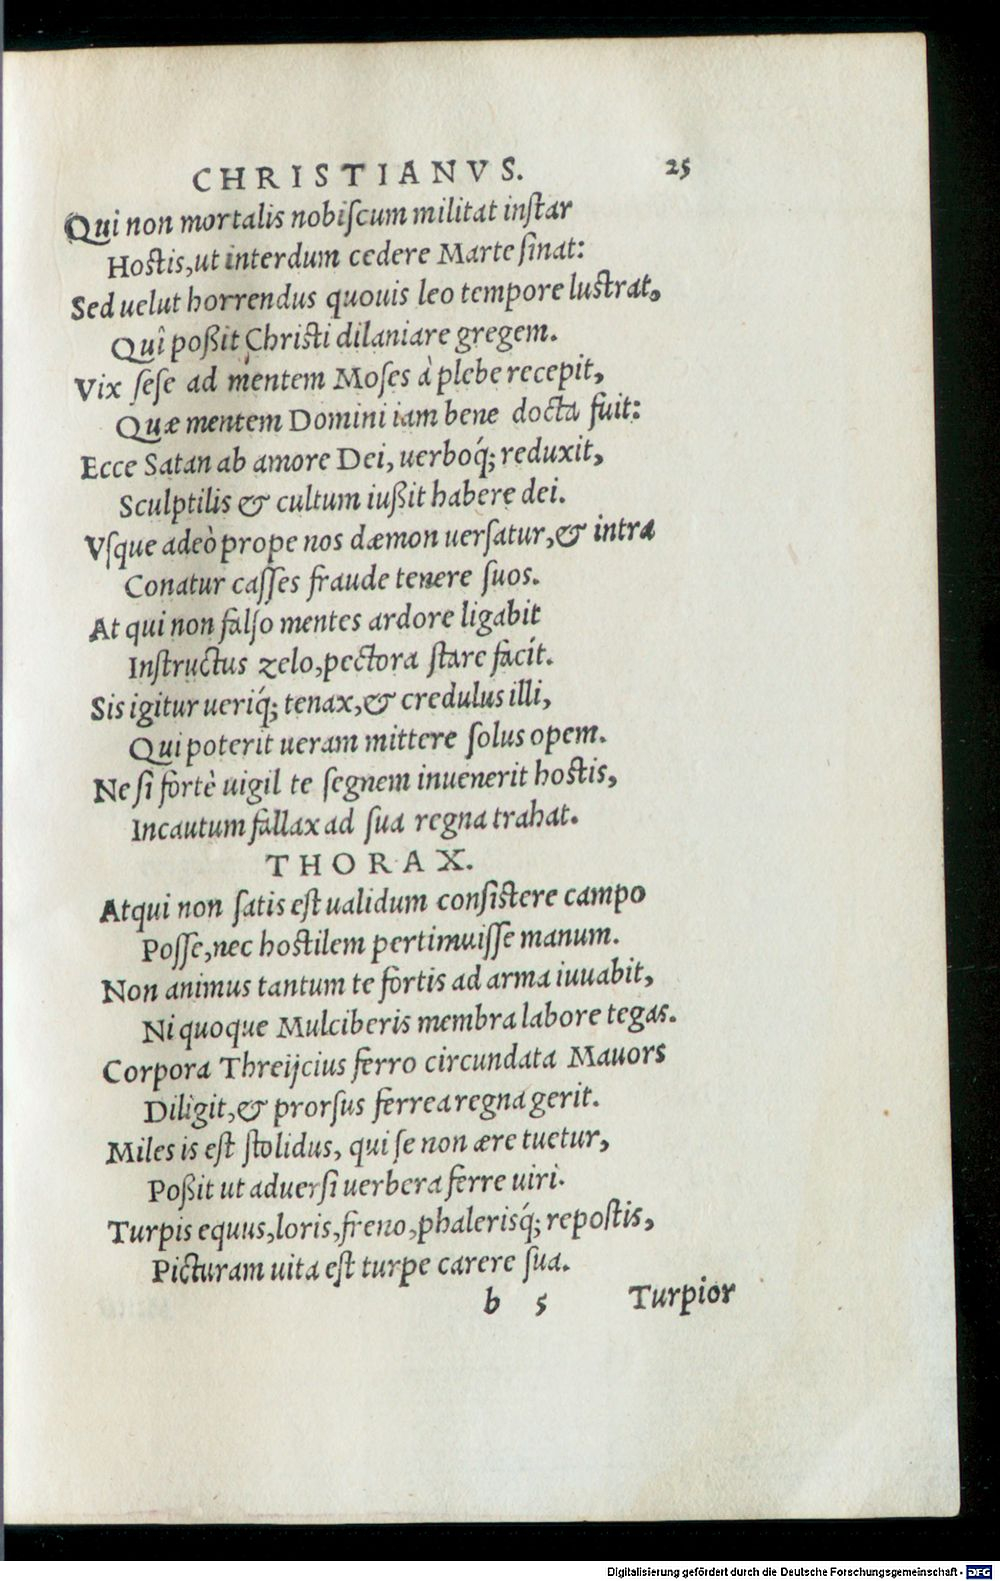 CHRISTIANVS. 25
Qui non mortalis nobiſcum militat inſtar
Hostis, ut interdum cedere Marte ſinat:
Sed uelut horrendus quouis leo tempore lustrat,
Quî poßit Christi dilaniare gregem.
Vix ſeſe ad mentem Moſes à plebe recepit,
Quæ mentem Domini iam bene docta fuit:
Ecce Satan ab amore Dei, uerboq́; reduxit,
Sculptilis & cultum iußit habere dei.
Vſque adeò prope nos dæmon uerſatur, & intra
Conatur caſſes fraude tenere ſuos.
At qui non falſo mentes ardore ligabit
Inſtructus zelo, pectora ſtare facit.
Sis igitur ueriq́; tenax, & credulus illi,
Qui poterit ueram mittere ſolus opem.
Ne ſi fortè uigil te ſegnem inuenerit hostis,
Incautum fallax ad ſua regna trahat.
THORAX.
Atqui non ſatis eſt ualidum conſistere campo
Poſſe, nec hostilem pertimuiſſe manum.
Non animus tantum te fortis ad arma iuuabit,
Ni quoque Mulciberis membra labore tegas.
Corpora Threijcius ferro circundata Mauors
Diligit, & prorſus ferrea regna gerit.
Miles is eſt ſtolidus, qui ſe non ære tuetur,
Poßit ut aduerſi uerbera ferre uiri.
Turpis equus, loris, freno, phalerisq́; repostis,
Picturam uita eſt turpe carere ſua.
b 5 Turpior
Digitalisierung gefördert durch die Deutsche Forschungsgemeinschaft - DFG